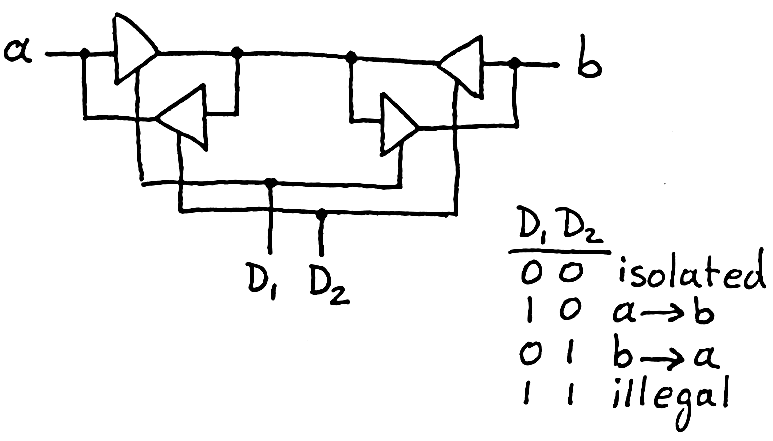 a b
D₁ D₂
D₁ D₂
0 0 isolated
1 0 a→b
0 1 b→a
1 1 illegal